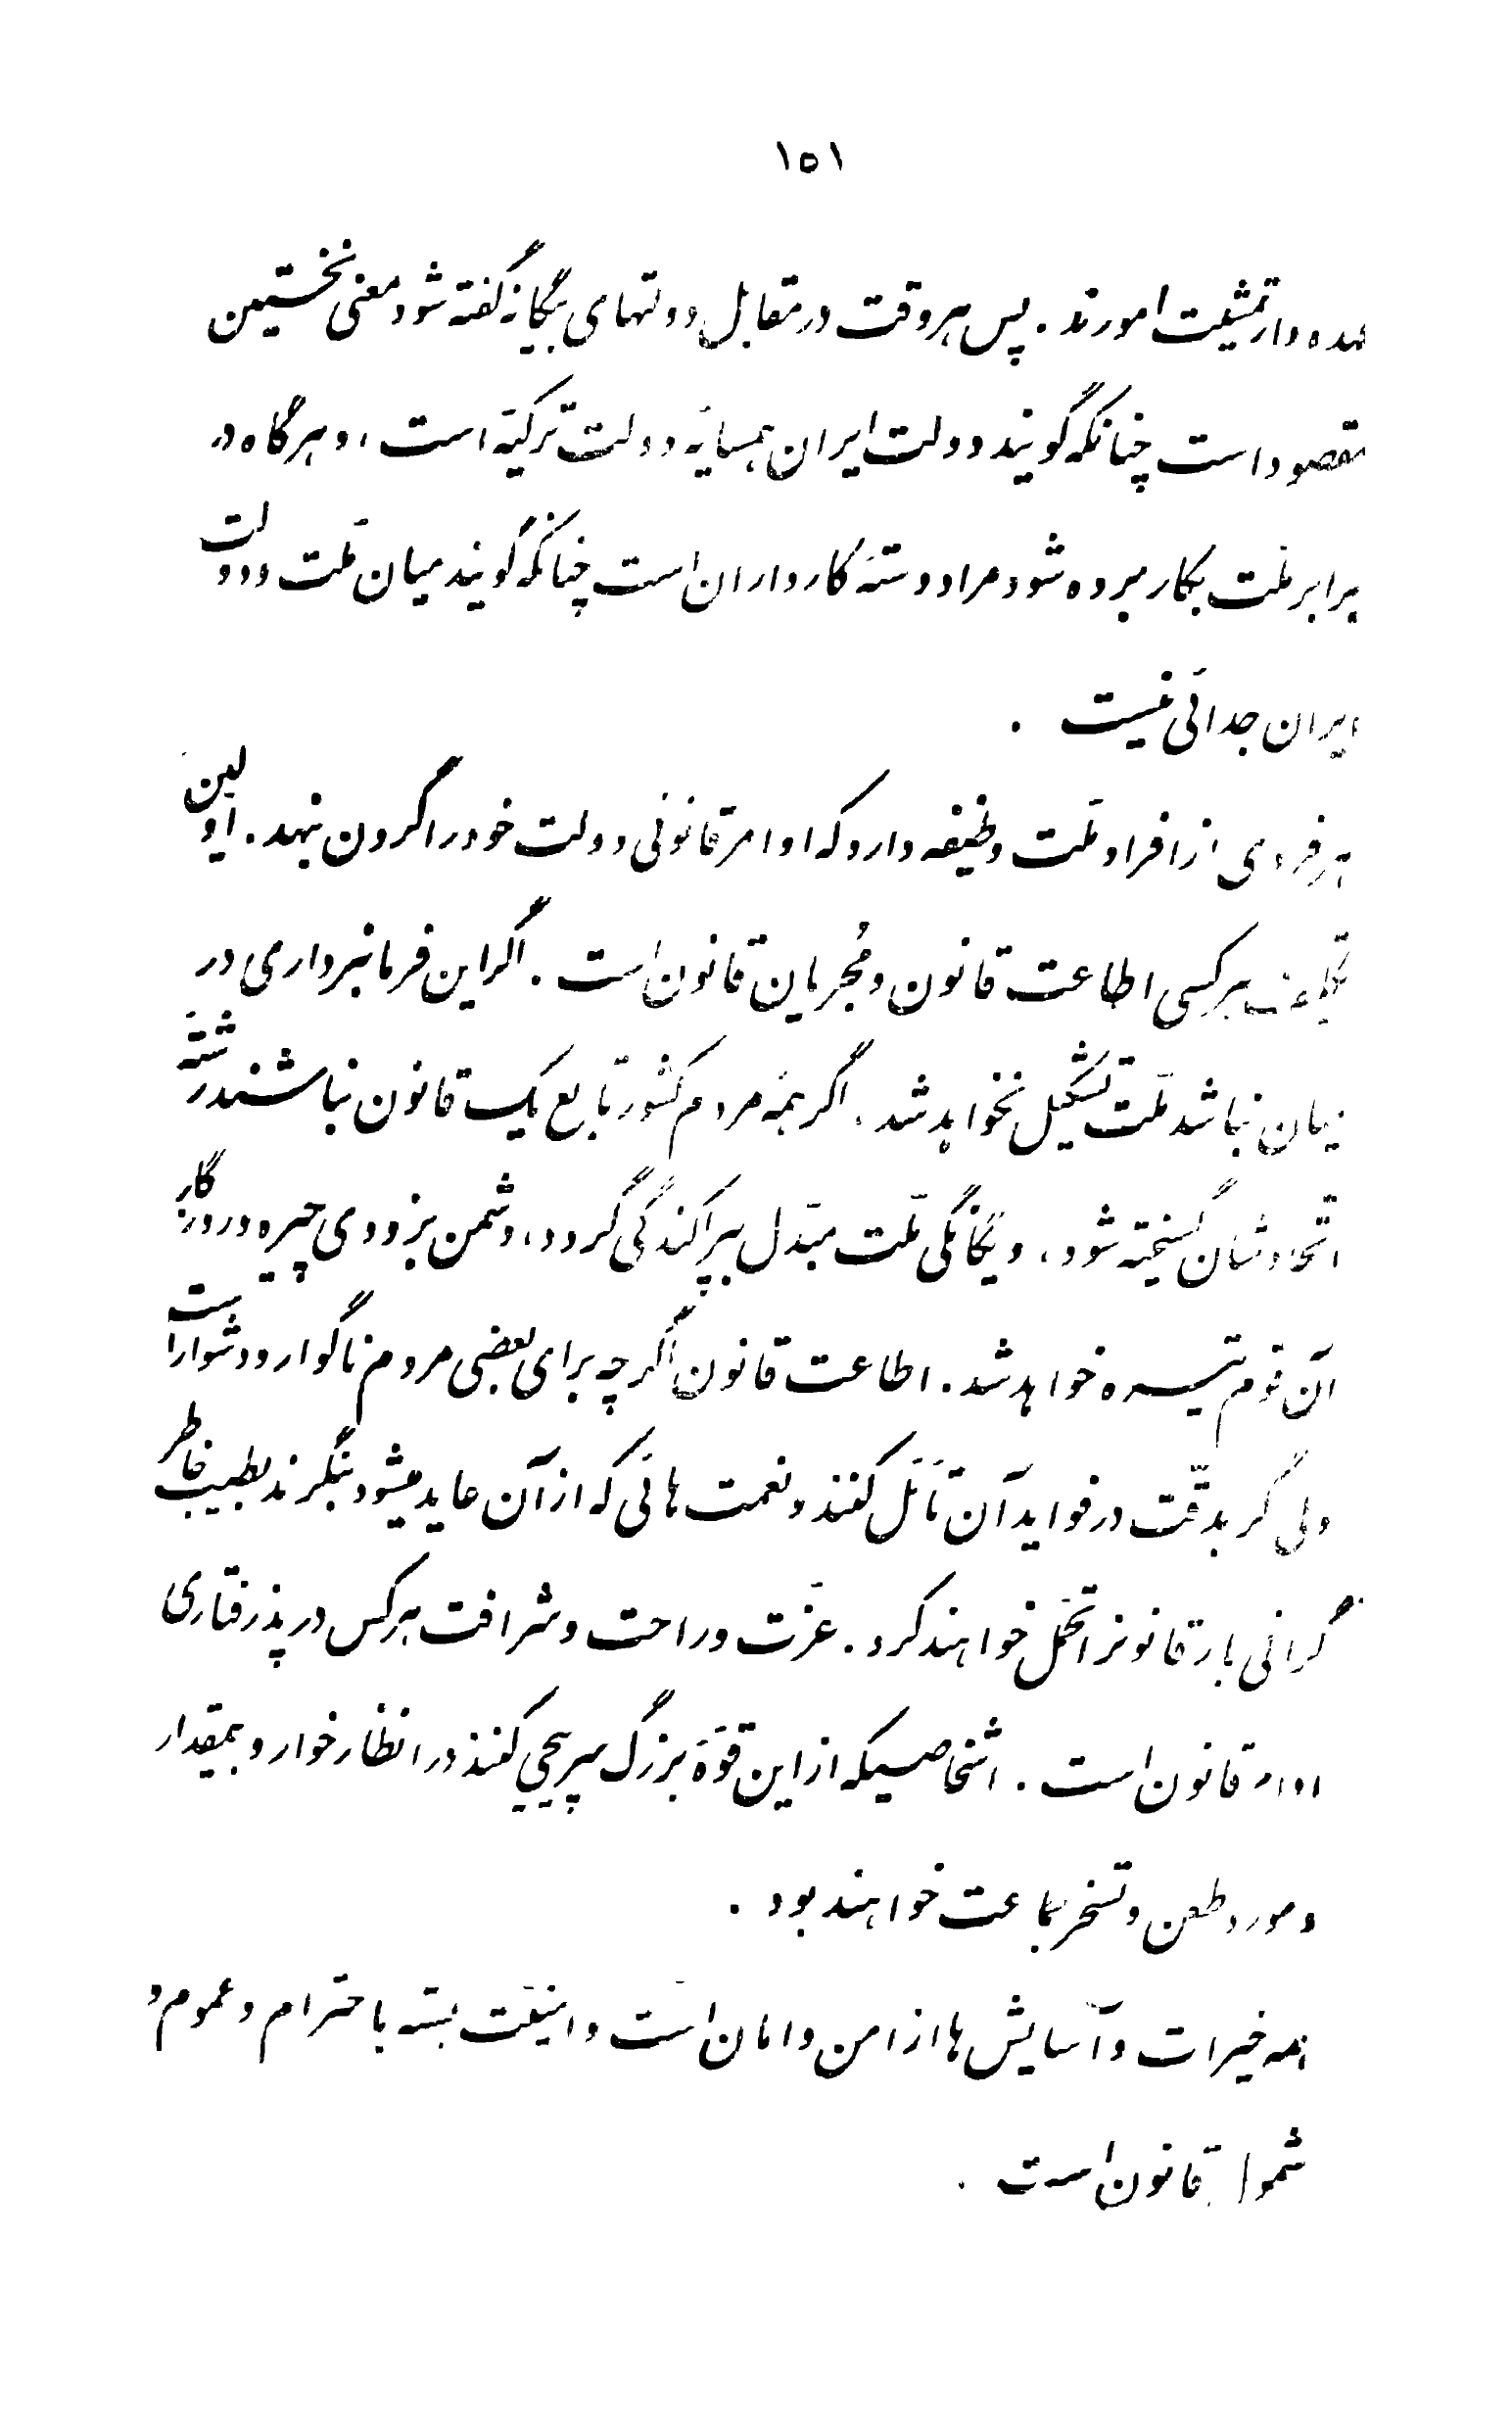 ۱۵۱
عهده دار تمشیت امورند . پس هر وقت در مقابل دولتهای بیگانه گفته شود معنی نخستین
مقصود است چنانکه گویند دولت ایران همسایهٔ دولت ترکیّه است ، و هر گاه در
برابر ملّت بکار برده شود مراد دستهٔ کارداران است چنانکه گویند میان ملّت و دولت
ایران جدائی نیست .
هر فردی از افراد ملّت وظیفه دارد که اوامر قانونی دولت خود را گردن نهد . اوّلین
تکلیف هر کسی اطاعت قانون و مُجریان قانون است . اگر این فرمانبرداری در
میان نباشد ملّت تشکیل نخواهد شد . اگر همهٔ مردم کشور تابع یک قانون نباشند رشتهٔ
اتّحادشان گسیخته شود ، و یگانگی ملّت مبدّل بپراکندگی گردد ، دشمن بزودی چیره و روزگار
آن قوم تیره خواهد شد . اطاعت قانون اگر چه برای بعضی مردم ناگوار و دشوار است
ولی گر بدقّت در فواید آن تأمّل کنند و نعمت هائی که از آن عاید میشود بنگرند بطیب خاطر
گرانی بار قانونرا تحمّل خواهند کرد . عزّت و راحت و شرافت هر کس در پذرفتاری
اوامر قانون است . اشخاصیکه از این قوّهٔ بزرگ سرپیچی کنند در انظار خوار و بیمقدار
و مورد طعن و تسخر جماعت خواهند بود .
همه خیرات و آسایش ها از امن و امان است و امنیّت بسته باحترام و عموم و
شمول قانون است .